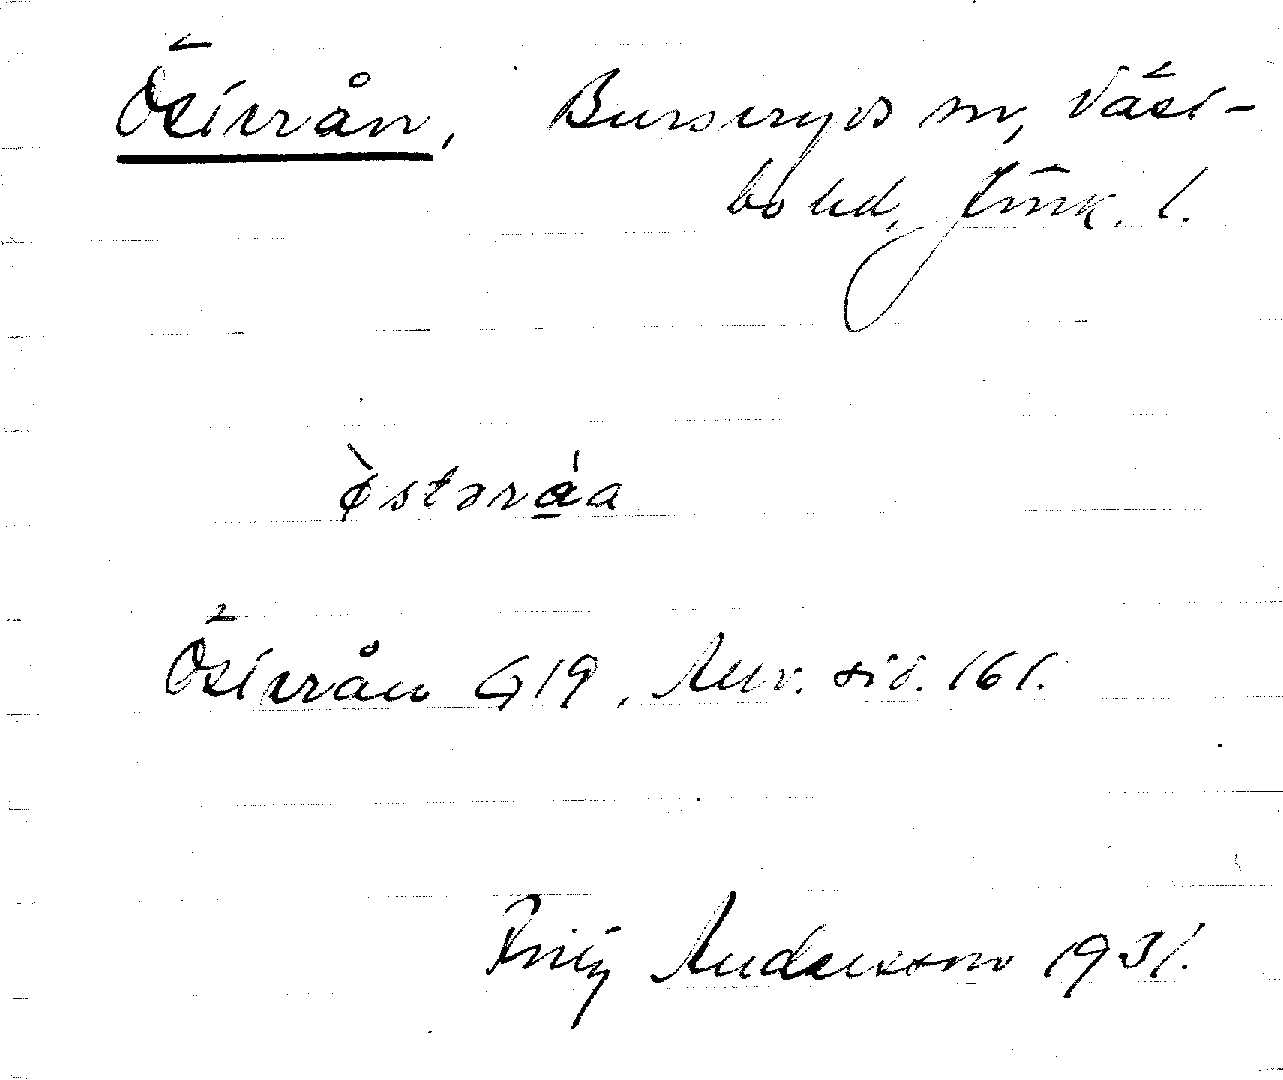 Österrån, Burseryds sn, Väst-
bo hd, Jönk. l.
ø̀stəráa
Österrån G19, Anv. sid. 161.
Fritz Andersson 1931.